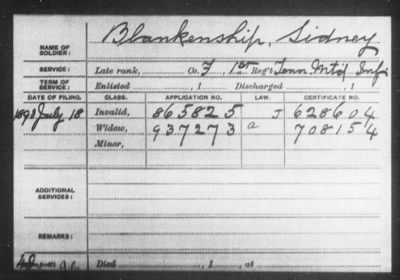 NAME OF SOLDIER: Blankenship, Sidney
SERVICE: Late rank, Co. F, 1st Reg't Tenn. Mtd Inf;
TERM OF SERVICE: Enlisted , 1 Discharged , 1
DATE OF FILING. CLASS. APPLICATION NO. LAW. CERTIFICATE NO.
1890 July 18 Invalid, 865825 J 628604
Widow, 937273 a 708154
Minor,
ADDITIONAL SERVICES:
REMARKS:
Died , 1 , at